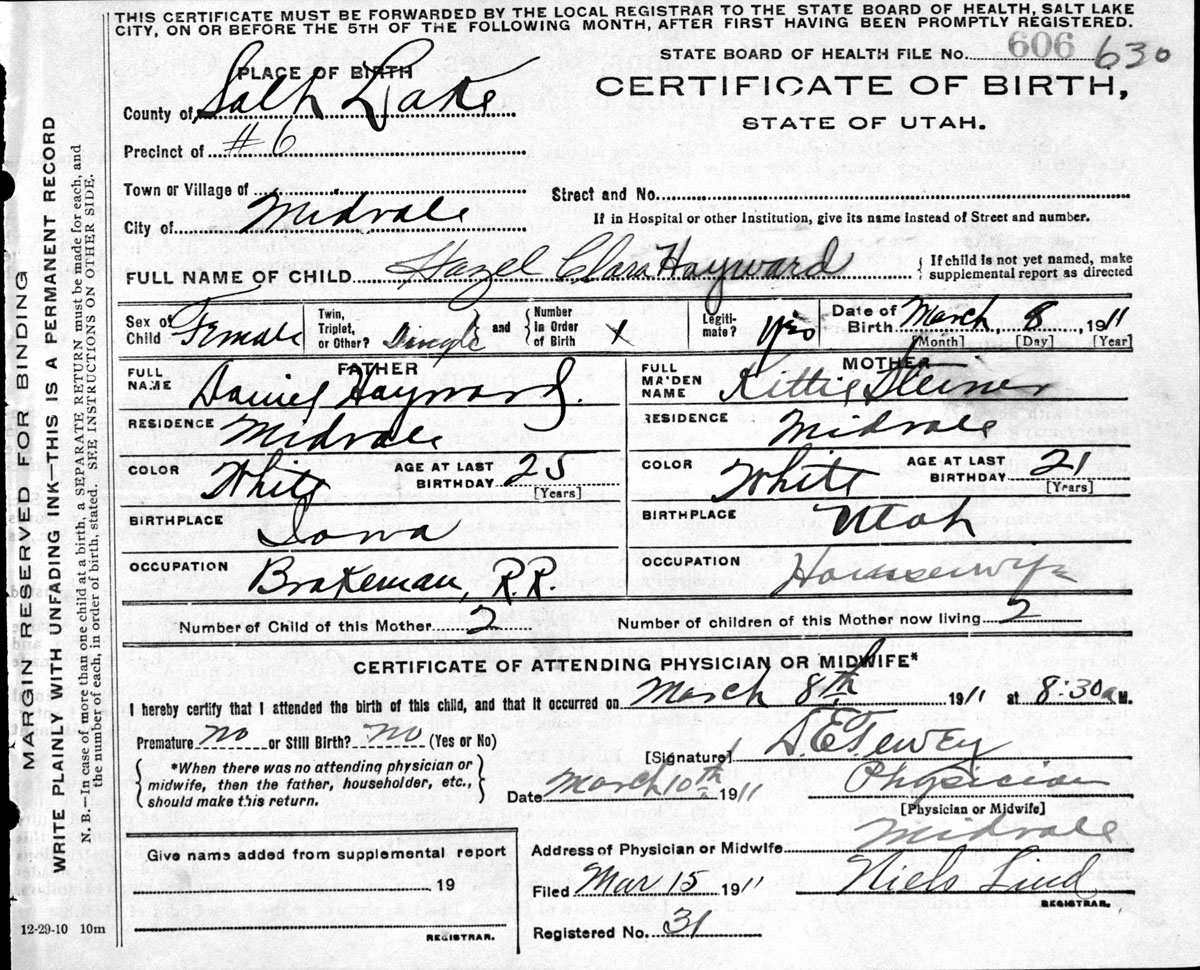 THIS CERTIFICATE MUST BE FORWARDED BY THE LOCAL REGISTRAR TO THE STATE BOARD OF HEALTH, SALT LAKE
CITY, ON OR BEFORE THE 5TH OF THE FOLLOWING MONTH, AFTER FIRST HAVING BEEN PROMPTLY REGISTERED.
STATE BOARD OF HEALTH FILE No. 606 630
PLACE OF BIRTH
CERTIFICATE OF BIRTH,
STATE OF UTAH.
County of Salt Lake
Precinct of #6
Town or Village of
Street and No.
City of Midvale
If in Hospital or other Institution, give its name instead of Street and number.
FULL NAME OF CHILD Hazel Clara Hayward { If child is not yet named, make
supplemental report as directed
Sex of Child Female Twin, Triplet, or Other? Single } and { Number In Order of Birth X Legiti-mate? Yes Date of Birth March, 8, 1911
[Month] [Day] [Year]
FATHER MOTHER
FULL NAME Daniel Hayward. FULL MAIDEN NAME Kittie Steiner
RESIDENCE Midvale RESIDENCE Midvale
COLOR White AGE AT LAST BIRTHDAY 25 [Years] COLOR White AGE AT LAST BIRTHDAY 21 [Years]
BIRTHPLACE Iowa BIRTHPLACE Utah
OCCUPATION Brakeman, R.R. OCCUPATION Housewife
Number of Child of this Mother 2 Number of children of this Mother now living 2
CERTIFICATE OF ATTENDING PHYSICIAN OR MIDWIFE*
I hereby certify that I attended the birth of this child, and that it occurred on March 8th 1911 at 8:30 a M.
Premature no or Still Birth? no (Yes or No)
[Signature]
{ *When there was no attending physician or
midwife, then the father, householder, etc.,
should make this return. }
Date March 10th 1911 Physician
[Physician or Midwife]
Give name added from supplemental report
19
REGISTRAR.
Address of Physician or Midwife Midvale
Filed Mar 15 1911 Niels Lind
REGISTRAR.
Registered No. 31
12-29-10 10m
MARGIN RESERVED FOR BINDING
WRITE PLAINLY WITH UNFADING INK—THIS IS A PERMANENT RECORD
N. B.—In case of more than one child at a birth, a SEPARATE RETURN must be made for each, and
the number of each, in order of birth, stated. SEE INSTRUCTIONS ON OTHER SIDE.